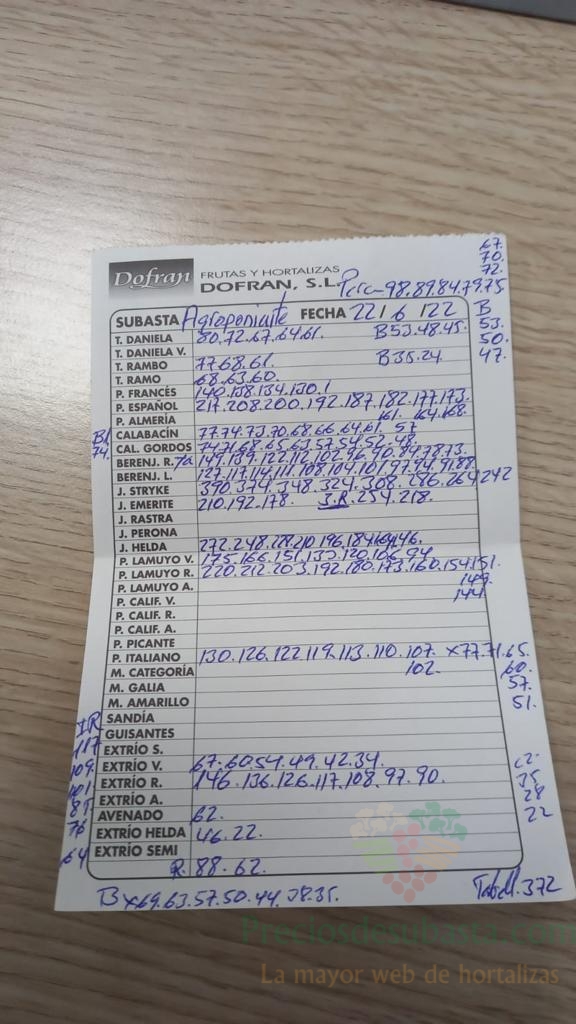 67.
70.
72.
Dofran FRUTAS Y HORTALIZAS
DOFRAN, S.L. Pera-98.89.84.79.75
SUBASTA Agroponiente FECHA 22/6/22 B
T. DANIELA 80.72.67.64.61. B53.48.45. 53.
T. DANIELA V. 50.
T. RAMBO 77.68.61. B35.24. 47.
T. RAMO 68.63.60.
P. FRANCÉS 140.138.134.130.1
P. ESPAÑOL 217.208.200.192.187.182.177.173.
P. ALMERÍA 161. 164.168.
CALABACÍN 77.74.73.70.68.66.64.61. 57
CAL. GORDOS 74.71.68.65.63.57.54.52.48.
BERENJ. R. 149.139.122.112.102.96.90.84.78.73.
BERENJ. L. 127.117.114.111.108.104.101.97.94.91.88.
J. STRYKE 390.374.348.324.308.286.264.242
J. EMERITE 210.192.178. 254.218.
J. RASTRA
J. PERONA
J. HELDA 272.248.228.210.196.184.164.146.
P. LAMUYO V. 175.166.151.135.120.106.94
P. LAMUYO R. 220.212.203.192.180.173.160.154.151.
P. LAMUYO A. 149.
P. CALIF. V. 144.
P. CALIF. R.
P. CALIF. A.
P. PICANTE
P. ITALIANO 130.126.122.119.113.110.107. x77.71.65.
M. CATEGORÍA 102. 60.
M. GALIA 57.
M. AMARILLO 51.
SANDÍA
GUISANTES
117
EXTRÍO S.
109. EXTRÍO V. 67.60.54.49.42.34.
101 EXTRÍO R. 146.136.126.117.108.97.90. 35
EXTRÍO A. 28
AVENADO 62. 22
76 EXTRÍO HELDA 46.22.
64 EXTRÍO SEMI
R. 88.62.
B x69.63.57.50.44.38.35. 372
Preciosdesubasta.com
La mayor web de hortalizas